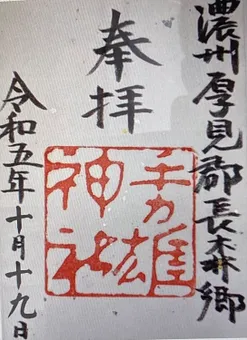 濃州厚見郡長森井郷
奉拝
手力雄
神社
令和五年十月十九日